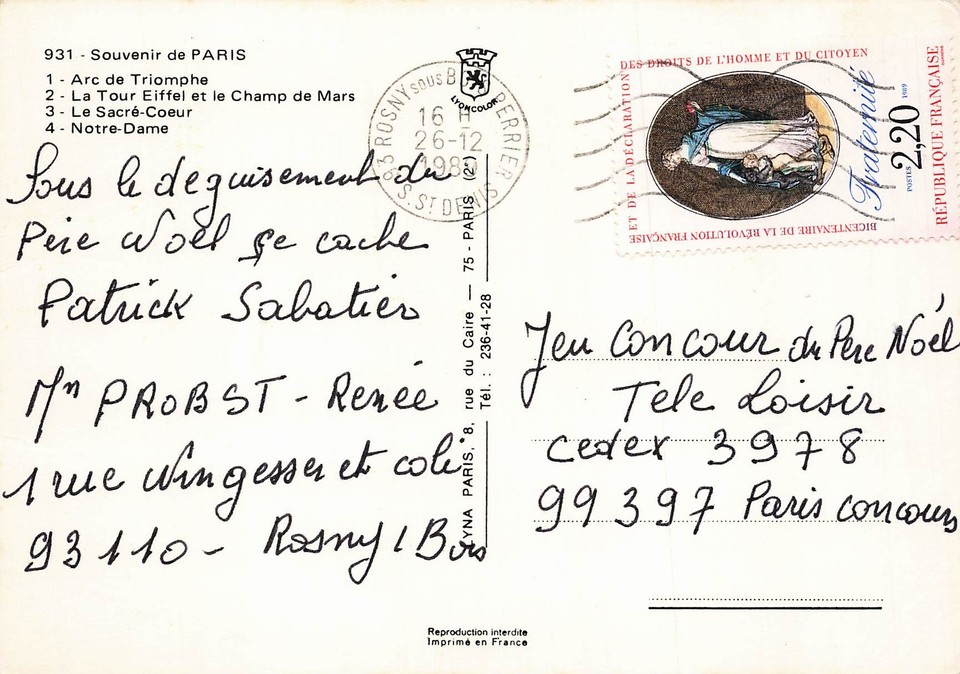 931 - Souvenir de PARIS
1 - Arc de Triomphe
2 - La Tour Eiffel et le Champ de Mars
3 - Le Sacré-Coeur
4 - Notre-Dame
LYONCOLOR
93 ROSNY SOUS B PERRIER
16 H
26-12
S. ST DENIS
DES DROITS DE L'HOMME ET DU CITOYEN
ET DE LA DÉCLARATION
BICENTENAIRE DE LA RÉVOLUTION FRANÇAISE
Fraternité
POSTES 2,20 1989
RÉPUBLIQUE FRANÇAISE
Sous le deguisement du
Père Noël se cache
Patrick Sabatier
Mn PROBST - Renée
1 rue Nungesser et coli
93110 - Rosny / Bois
LYNA PARIS, 8, rue du Caire — 75 - PARIS (2e)
Tél. : 236-41-28
Jeu Concour du Père Noël
Tele Loisir
cedex 3978
99397 Paris concours
Reproduction interdite
Imprimé en France